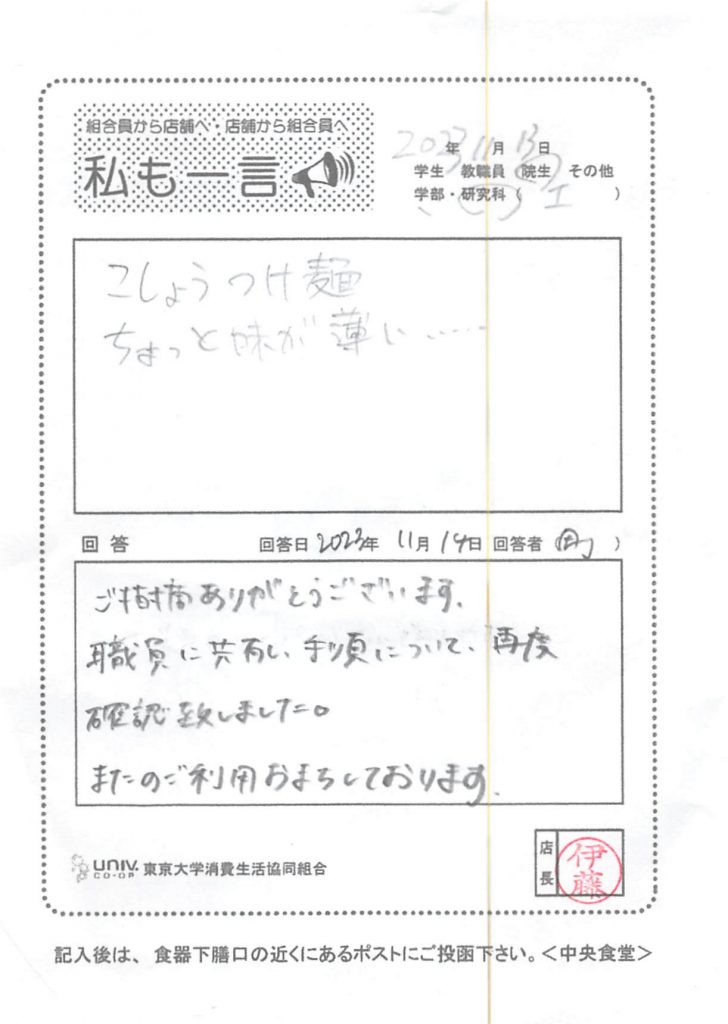 組合員から店舗へ・店舗から組合員へ
私も一言
2023年11月13日
学生 教職員 院生 その他
学部・研究科( 工 )
こしょうつけ麺
ちょっと味が薄い……
回答 回答日2023年11月14日 回答者 )
ご指摘ありがとうございます。
職員に共有し、手順について、再度
確認致しました。
またのご利用おまちしております。
店長
伊藤
UNIV.
CO-OP
東京大学消費生活協同組合
記入後は、食器下膳口の近くにあるポストにご投函下さい。<中央食堂>